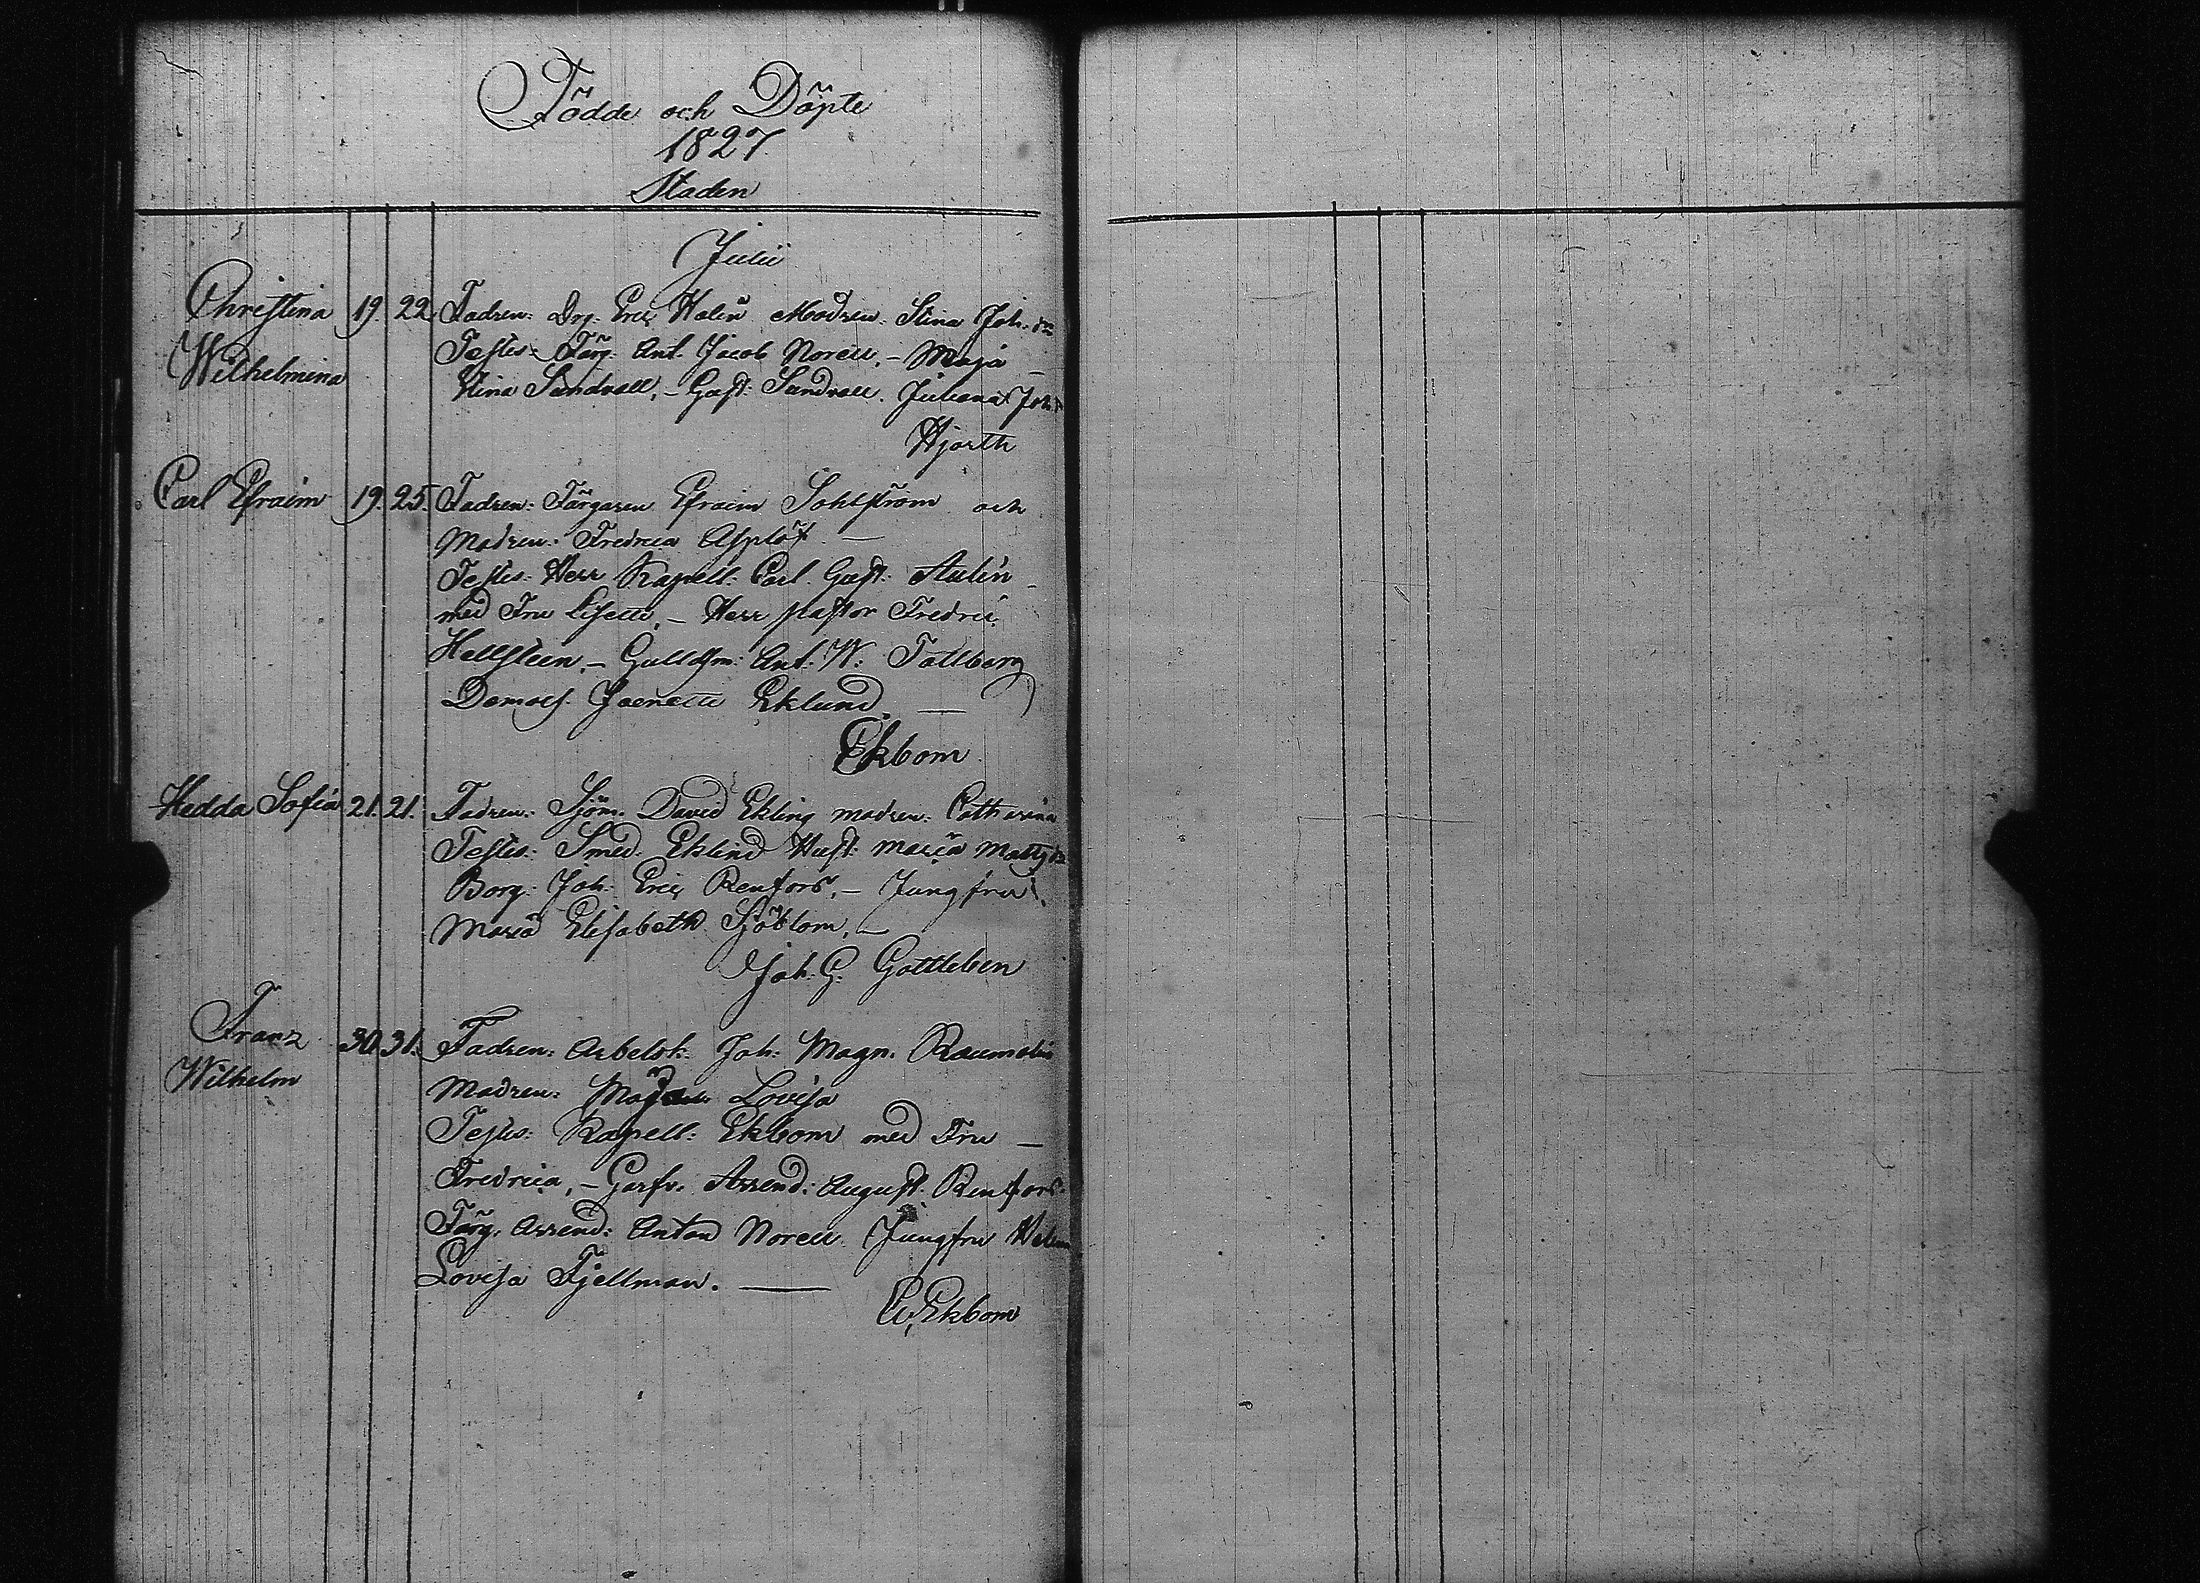 Födde och Döpte
1827
Staden
Julii
Christina 19. 22 Fadren: Drg. Eric Holm Modren: Stina Joh. dr
Testes: Färg. Ant. Jacob Norell, – Maja
Wilhelmina
Stina Sundvall, – Gust. Sundvall. Juliana Joh. dr
Hjorth
Carl Efraim 19. 25. Fadren: Färgaren Efraim Sohlström och
Modren: Fredrica Asplöf —
Testes: Herr Kapell: Carl Gust: Aulin
med Fru Lisette, – Herr pastor Fredric
Hellsteen, – Gulldsm: Ant. W: Tallberg
Demois. Jaenette Eklund —
Ekbom
Hedda Sofia 21. 21. Fadren: Sjöm. David Ekling modren: Catharina
Testes: Smed. Eklind Hust. maria Matts dr
Borg: Joh: Eric Renfors, – Jungfru
Maria Elisabeth Sjöblom, —
Joh. G. Gottleben
Franz 30. 31. Fadren: Arbetsk: Joh: Magn. Raumolin
Wilhelm
Modren: Maja Lovisa
Testes: Kapell: Ekbom med Fru —
Fredrica, – Garfv. Arrend: August Renfors
Färg. Arrend: Anton Norell. Jungfru
Lovisa Fjellman. —
Ekbom